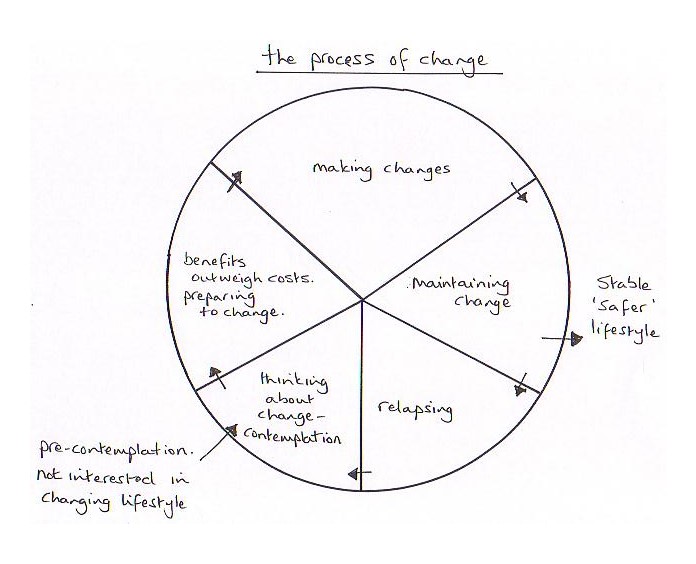 the process of change
making changes
benefits
outweigh costs.
preparing
to change.
Maintaining
change
Stable
'safer'
lifestyle
thinking
about
change -
contemplation
relapsing
pre-contemplation.
not interested in
changing lifestyle